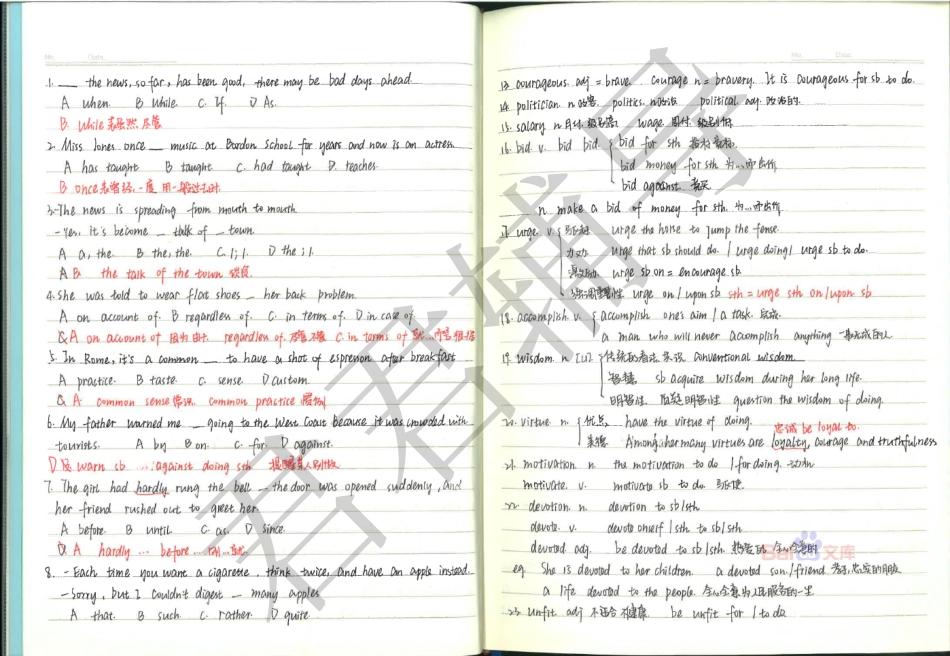 No. Date.
1. __ the news, so far, has been good, there may be bad days ahead.
A when. B While. C. If. D As.
B. While 表虽然,尽管
2. Miss Jones once __ music at Bordon School for years and now is an actren.
A has taught B taught C. had taught D. teaches
B once表曾经,一度 用一般过去时.
3. -The news is spreading from mouth to mouth
- Yes, it's become __ talk of __ town.
A a, the. B the, the. C. 1; 1. D the; 1.
A B the talk of the town
4. She was told to wear flat shoes __ her back problem.
A on account of B regardless of. C. in terms of. D in case of
A on account of 因为 由于. regardless of. 尽管 不管 C in terms of
5. In Rome, it's a common __ to have a shot of espresson after breakfast
A practice. B taste. C. sense. D custom.
A common sense 常识. common practice 惯例
6. My father warned me __ going to the West Coast because it was crowded with
tourists. A by B on. C. for. D against.
D B warn sb ... against doing sth. 提醒某人别做
7. The girl had hardly rung the bell __ the door was opened suddenly, and
her friend rushed out to greet her.
A before. B until. C. as. D since.
A hardly ... before ...
8. - Each time you want a cigarette, think twice, and have an apple instead.
- Sorry, but I couldn't digest __ many apples
A that. B such. C. rather. D quite.
No. Date.
13. courageous. adj = brave. courage n = bravery. It is courageous for sb to do.
14. politician n 政客. politics. n 政治 political. adj. 政治的.
15. salary. n 月付. wage. 周付.
16. bid. v. bid bid bid for sth
bid money for sth 为...而出价
bid against. 竞买
n. make a bid of money for sth. 为...而出价
urge. v. urge the horse to jump the fense.
urge that sb should do. / urge doing / urge sb to do.
urge sb on = encourage sb.
强调重要性. urge on / upon sb sth = urge sth on / upon sb
18. accomplish. v. accomplish one's aim / a task. 完成
a man who will never accomplish anything 一事无成的人
19. wisdom. n [U] conventional wisdom
智慧. sb acquire wisdom during her long life.
明智性. 质疑明智性 question the wisdom of doing.
忠诚 be loyal to.
20. virtue n. 优点. have the virtue of doing.
美德. Among her many virtues are loyalty, courage and truthfulness
21. motivation n. the motivation to do / for doing. 动力
motivate. v. motivate sb to do. 驱使
22. devotion. n. devotion to sb/sth.
devote. v. devote oneself / sth to sb/sth.
devoted adj. be devoted to sb/sth. 热爱的 全心全意的
eg. She is devoted to her children. a devoted son / friend 孝子, 忠实的朋友
a life devoted to the people. 全心全意为人民服务的一生
23. unfit adj 不适合 不健康. be unfit for / to do.
君君辅导
Bai 文库